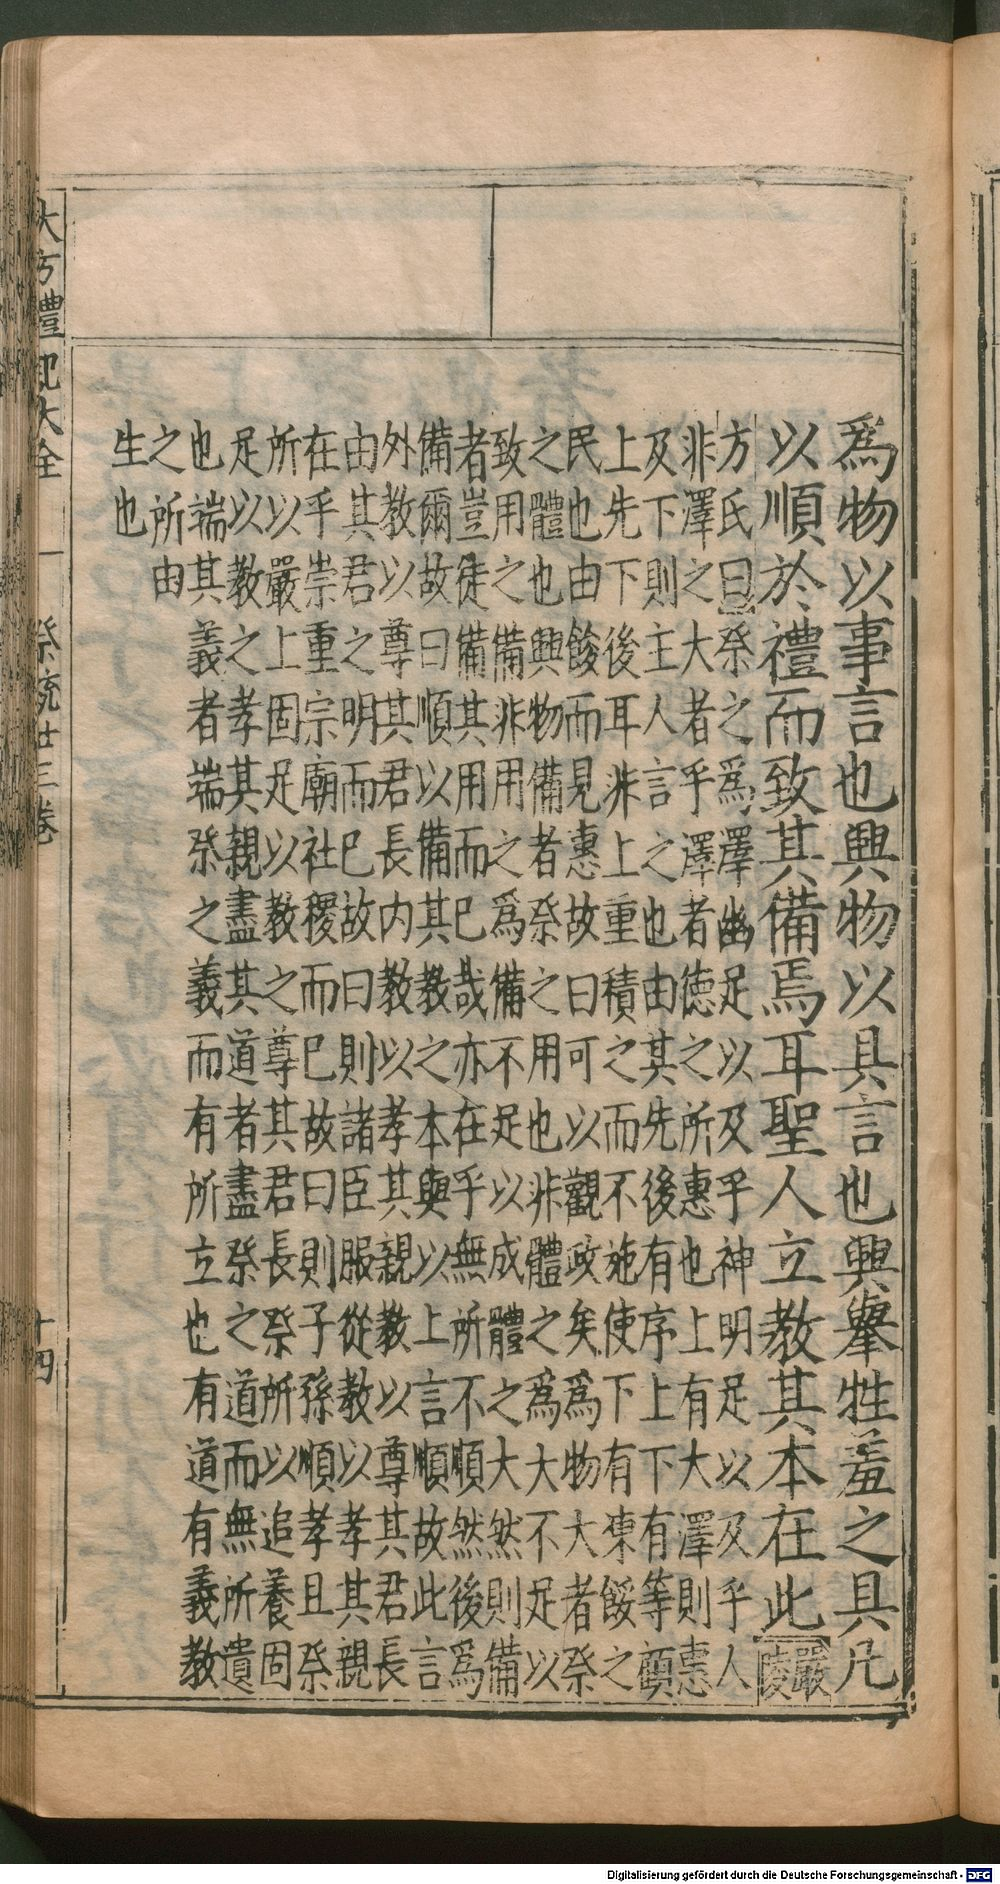 爲物以事言也興物以具言也興舉牲羞之具凡
以順於禮而致其備焉耳聖人立教其本在此嚴陵
方氏曰祭之爲澤幽足以及乎神明足以及乎人
非澤之大者乎澤者德之所惠也上有大澤則惠
及下則主人言之也由其先後有序上下有等顧
上先下後耳非上重積之而不施使下有凍餒之
民也由餕而見惠故曰可以觀政矣爲物大者祭
之體也興物備者祭之用也非體之爲大不足以
致用之備非用之爲備不足以成體之大然則備
者豈徒備其用而已哉亦在乎無所不順然後爲
備爾故曰順以備其教之本與以上言順故此言
外教以尊其君長内教以孝其親教以尊其君長
由其君之明而已故曰則諸臣服從教以孝其親
在乎崇重宗廟社稷而已故曰則子孫順孝且祭
所以嚴上固足以教之尊其君長祭所以追養固
足以教之孝其親盡其道者盡祭之道而無所遺
也端其義者端祭之義而有所立也有道有義教
之所由
生也
大方禮記大全 祭統廿三卷 十四
Digitalisierung gefördert durch die Deutsche Forschungsgemeinschaft - DFG